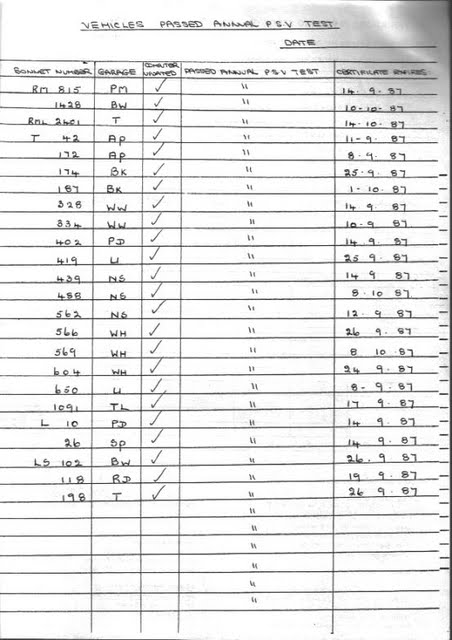 VEHICLES PASSED ANNUAL P.S.V TEST
DATE
BONNET NUMBER GARAGE COMPUTER UPDATED PASSED ANNUAL P.S.V TEST CERTIFICATE EXPIRES
RM 815 PM ✓ " 14. 9. 87
1428 BW ✓ " 10-10-87
RML 2401 T ✓ " 14.10.87
T 42 AP ✓ " 11-9.87
172 AP ✓ " 8.9.87
174 BK ✓ " 25-9.87
187 BK ✓ " 1-10.87
328 WW ✓ " 14 9. 87
334 WW ✓ " 10.9 87
402 PD ✓ " 14.9. 87
419 U ✓ " 25 9. 87
439 NS ✓ " 14 9 87
488 NS ✓ " 8.10 87
562 NS ✓ " 12.9 87
566 WH ✓ " 26 9. 87
569 WH ✓ " 8 10.87
604 WH ✓ " 24 9.87
650 U ✓ " 8-9.87
1091 TL ✓ " 17 9.87
L 10 PD ✓ " 14 9.87
26 SP ✓ " 14. 9.87
LS 102 BW ✓ " 26.9 87
118 RD ✓ " 19 9.87
198 T ✓ " 26 9.87
"
"
"
"
"
"